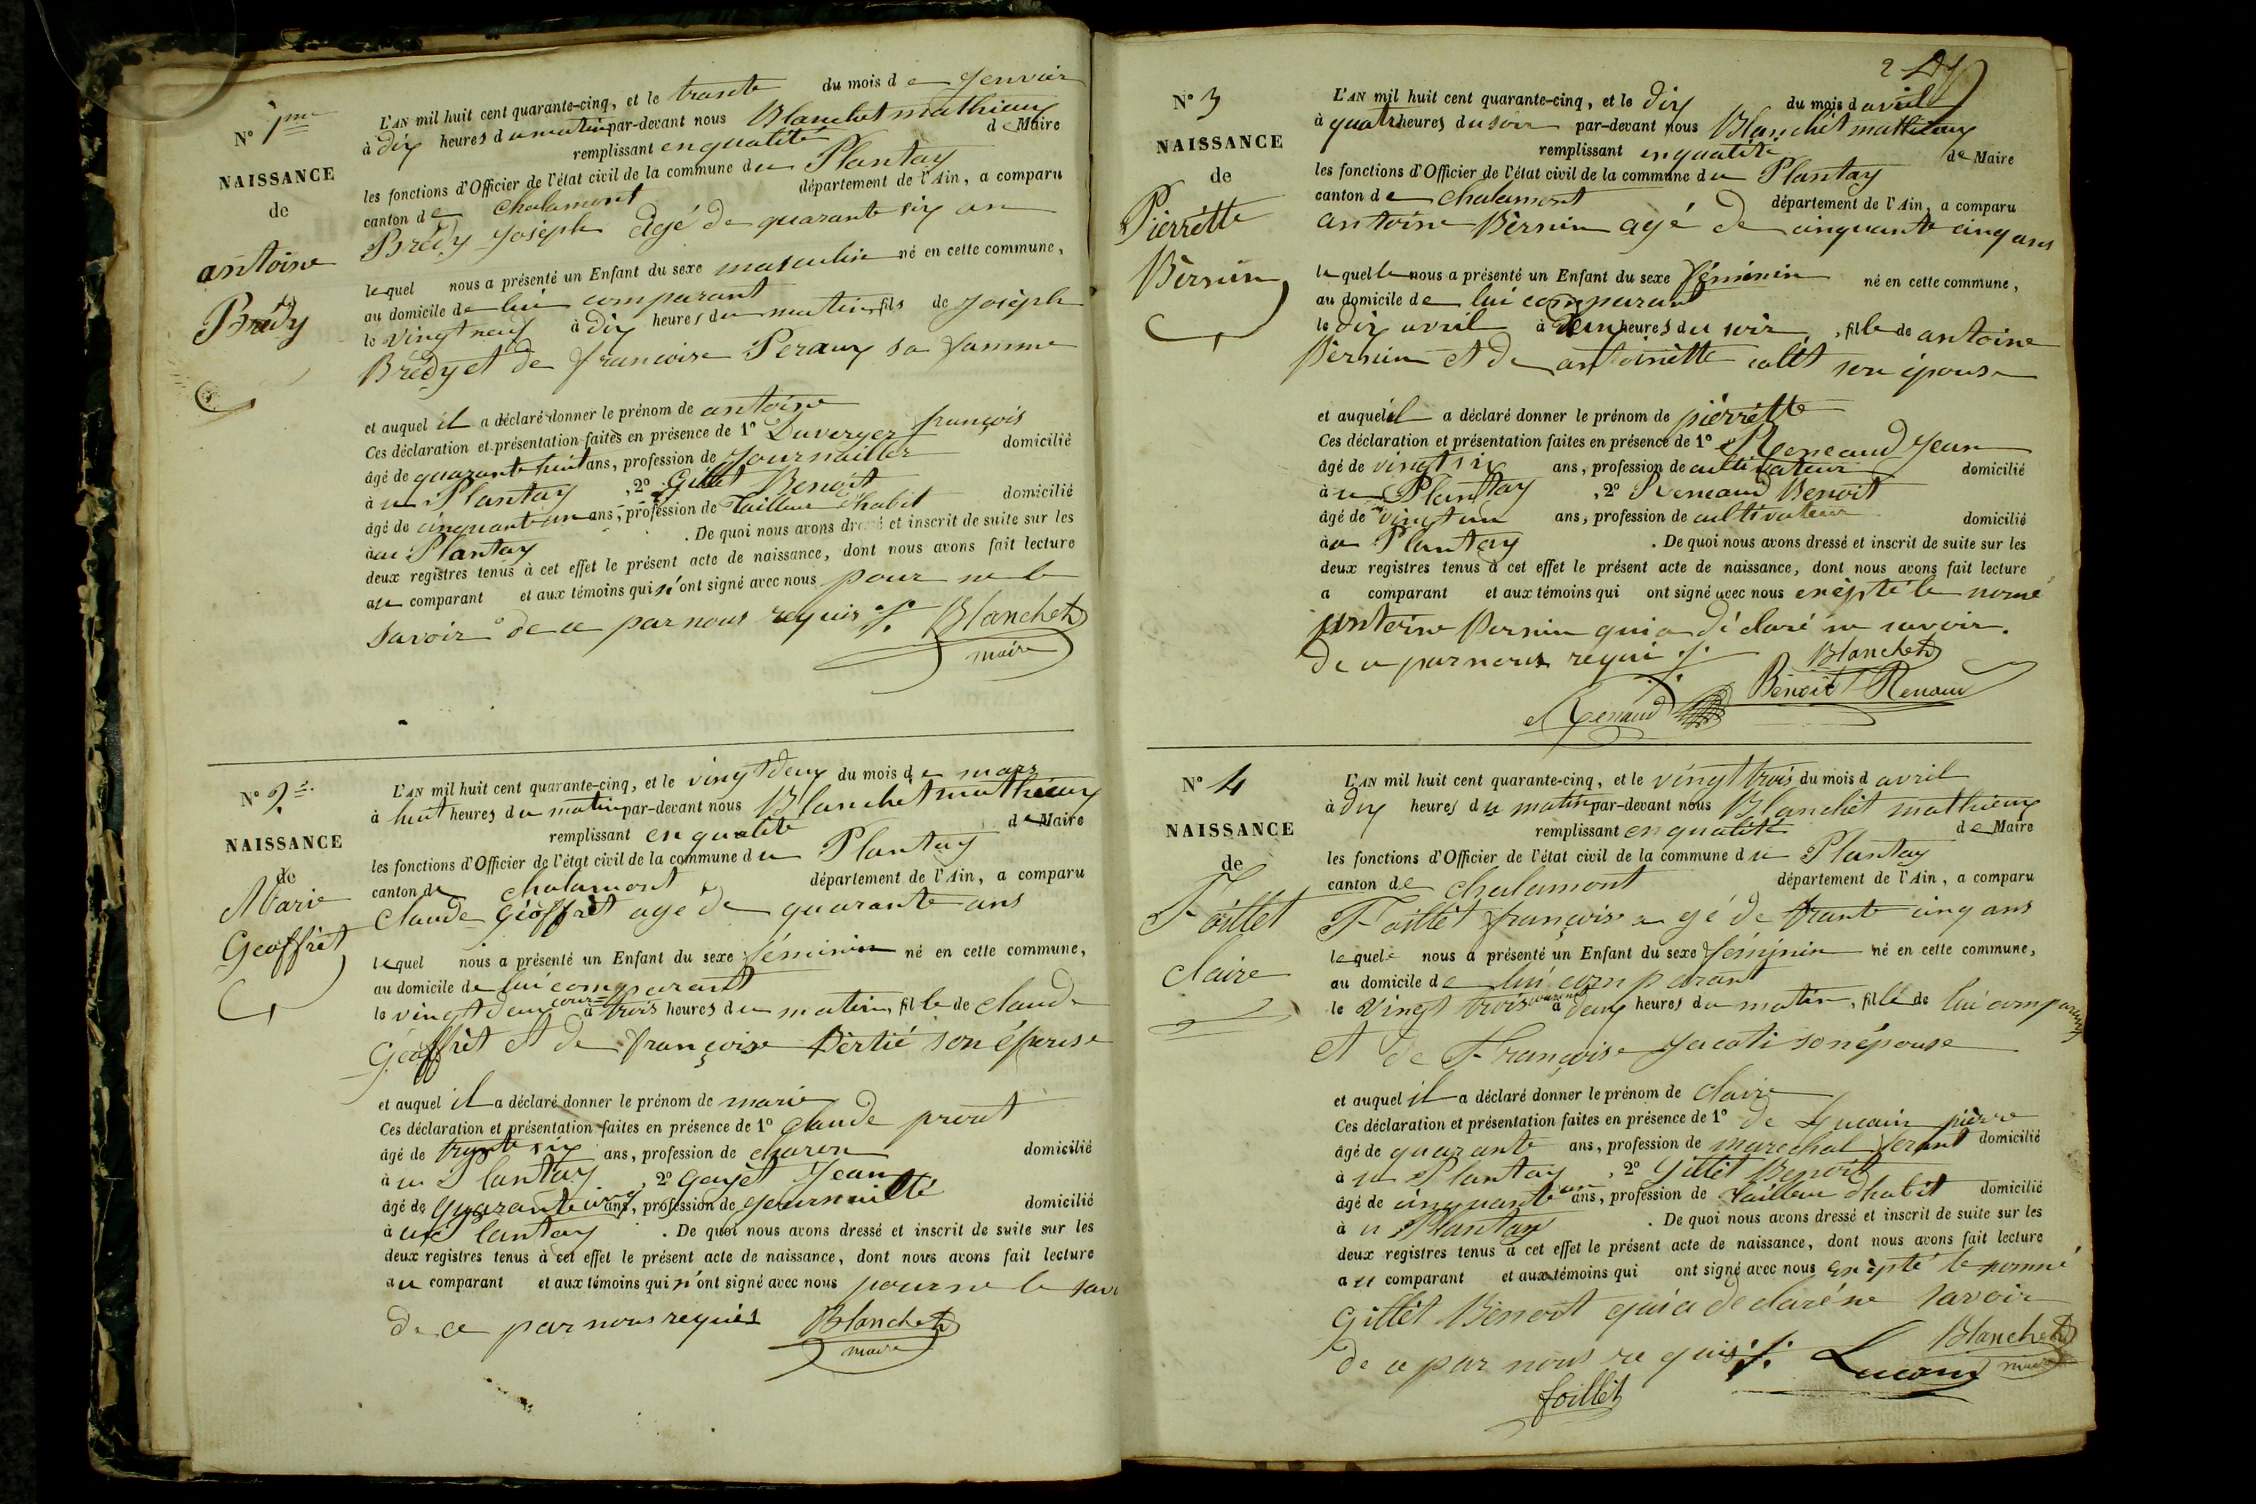 N° 1me
NAISSANCE
de
antoine
Brédy
L'AN mil huit cent quarante-cinq, et le trante du mois de Jenvier
à dix heures du matin par-devant nous Blanchet mathieux
remplissant en qualité de Maire
les fonctions d'Officier de l'état civil de la commune du Plantay
canton de chalamont département de l'Ain, a comparu
Brédy Joseph âgé de quarante six an
lequel nous a présenté un Enfant du sexe masculin né en cette commune,
au domicile de lui comparant
le vingt neuf à dix heures du matin fils de Joseph
Brédy et de francoise Peraux sa famme
et auquel il a déclaré donner le prénom de antoine
Ces déclaration et présentation faites en présence de 1° Duverger françois
âgé de quarante huit ans, profession de Journailler domicilié
à u Plantay , 2° Gillet Benoit
âgé de cinquante un ans, profession de Tailleur d'habit domicilié
à au Plantay . De quoi nous avons dressé et inscrit de suite sur les
deux registres tenus à cet effet le présent acte de naissance, dont nous avons fait lecture
au comparant et aux témoins qui n'ont signé avec nous pour ne le
savoir de ce par nous requis ./. Blanchet
maire
N° 2
NAISSANCE
de
Marie
Geoffrèt
L'AN mil huit cent quarante-cinq, et le vingt deux du mois de mars
à huit heures du matin par-devant nous Blanchet mathieux
remplissant en qualité de Maire
les fonctions d'Officier de l'état civil de la commune du Plantay
canton de chalamont département de l'Ain, a comparu
Claude Géoffrèt agé de quarante ans
lequel nous a présenté un Enfant du sexe féminin né en cette commune,
au domicile de lui comparant
le vingt deux à trois heures du matin, fille de claude
Géoffrèt et de françoise Bertié son épouse
et auquel il a déclaré donner le prénom de marie
Ces déclaration et présentation faites en présence de 1° claude prout
âgé de trente six ans, profession de charon domicilié
à u Plantay , 2° Gayet Jean
âgé de quarante cinq ans, profession de journaillé domicilié
à u Plantay . De quoi nous avons dressé et inscrit de suite sur les
deux registres tenus à cet effet le présent acte de naissance, dont nous avons fait lecture
au comparant et aux témoins qui n'ont signé avec nous pour ne le savoi
de ce par nous requis Blanchet
maire
2
N° 3
NAISSANCE
de
Pierrétte
Bèrnin
L'AN mil huit cent quarante-cinq, et le dix du mois d avril
à quatre heures du soir par-devant nous Blanchèt mathieux
remplissant en qualité de Maire
les fonctions d'Officier de l'état civil de la commune du Plantay
canton de chalamont département de l'Ain, a comparu
antoine Bèrnin agé de cinquante cinq ans
le quel le nous a présenté un Enfant du sexe féminin né en cette commune,
au domicile de lui comparant
le dix avril à heures du soir , fille de antoine
Bèrnin et de antoinètte colèt son épouse
et auquel il a déclaré donner le prénom de piérrétte
Ces déclaration et présentation faites en présence de 1° Reneaud Jean
âgé de vingt six ans, profession de cultivateur domicilié
à u Plantay , 2° Reneaud Benoit
âgé de vingt un ans, profession de cultivateur domicilié
à u Plantay . De quoi nous avons dressé et inscrit de suite sur les
deux registres tenus à cet effet le présent acte de naissance, dont nous avons fait lecture
a comparant et aux témoins qui ont signé avec nous exépté le nomé
antoine Bernin qui a déclaré ne savoir.
de ce par nous requi ./. Blanchet
Renaud Benoit Renaud
N° 4
NAISSANCE
de
Foillet
Claire
L'AN mil huit cent quarante-cinq, et le vingt trois du mois d avril
à dix heures du matin par-devant nous Blanchèt mathieux
remplissant en qualité de Maire
les fonctions d'Officier de l'état civil de la commune du Plantay
canton de chalamont département de l'Ain, a comparu
Foillèt françois agé de trante cinq ans
lequele nous a présenté un Enfant du sexe féminin né en cette commune,
au domicile de lui comparant
le vingt trois courant à deux heures du matin, fille de lui comparant
et de Françoise Jacoti son épouse
et auquel il a déclaré donner le prénom de claire
Ces déclaration et présentation faites en présence de 1° de Lucain pière
âgé de quarante ans, profession de marechal ferant domicilié
à u Plantay , 2° Gillèt Benoit
âgé de cinquante un ans, profession de tailleur d'habit domicilié
à u Plantay . De quoi nous avons dressé et inscrit de suite sur les
deux registres tenus à cet effet le présent acte de naissance, dont nous avons fait lecture
au comparant et aux témoins qui ont signé avec nous exèpté le nommé
Gillèt Benoit qui a declaré ne savoir
de ce par nous requis ./. Blanchet
maire
foillèt